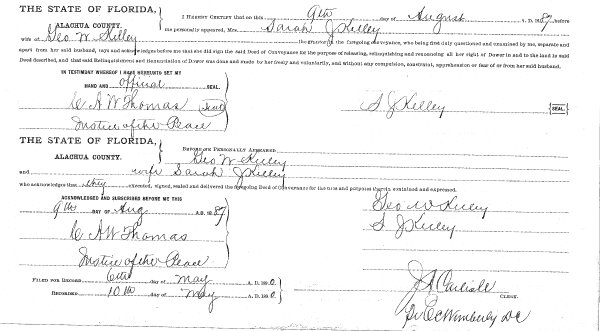 THE STATE OF FLORIDA,
ALACHUA COUNTY.
I HEREBY CERTIFY that on this 9th day of August A. D. 1889 before
me personally appeared, Mrs. Sarah J Kelley
wife of Geo W Kelley the grantor in the foregoing conveyance, who being first duly questioned and examined by me, separate and
apart from her said husband, says and acknowledges before me that she did sign the said Deed of Conveyance for the purpose of releasing, relinquishing and renouncing all her right of Dower in and to the land in said
Deed described, and that said Relinquishment and Renunciation of Dower was done and made by her freely and voluntarily, and without any compulsion, constraint, apprehension or fear of or from her said husband.
IN TESTIMONY WHEREOF I HAVE HEREUNTO SET MY
HAND AND official SEAL.
C A W Thomas (Seal)
Justice of the Peace
S J Kelley {SEAL}
THE STATE OF FLORIDA,
ALACHUA COUNTY.
BEFORE ME PERSONALLY APPEARED
Geo W Kelley
and wife Sarah J Kelley
who acknowledges that they executed, signed, sealed and delivered the foregoing Deed of Conveyance for the uses and purposes therein contained and expressed.
ACKNOWLEDGED AND SUBSCRIBED BEFORE ME THIS
9th DAY OF Aug A.D. 1889
C A W Thomas
Justice of the Peace
Geo W Kelley
S J Kelley
FILED FOR RECORD 6th day of May A. D. 1890
RECORDED 10th day of May A. D. 1890
J A Carlisle
CLERK.
Pr E C Wimberly DC